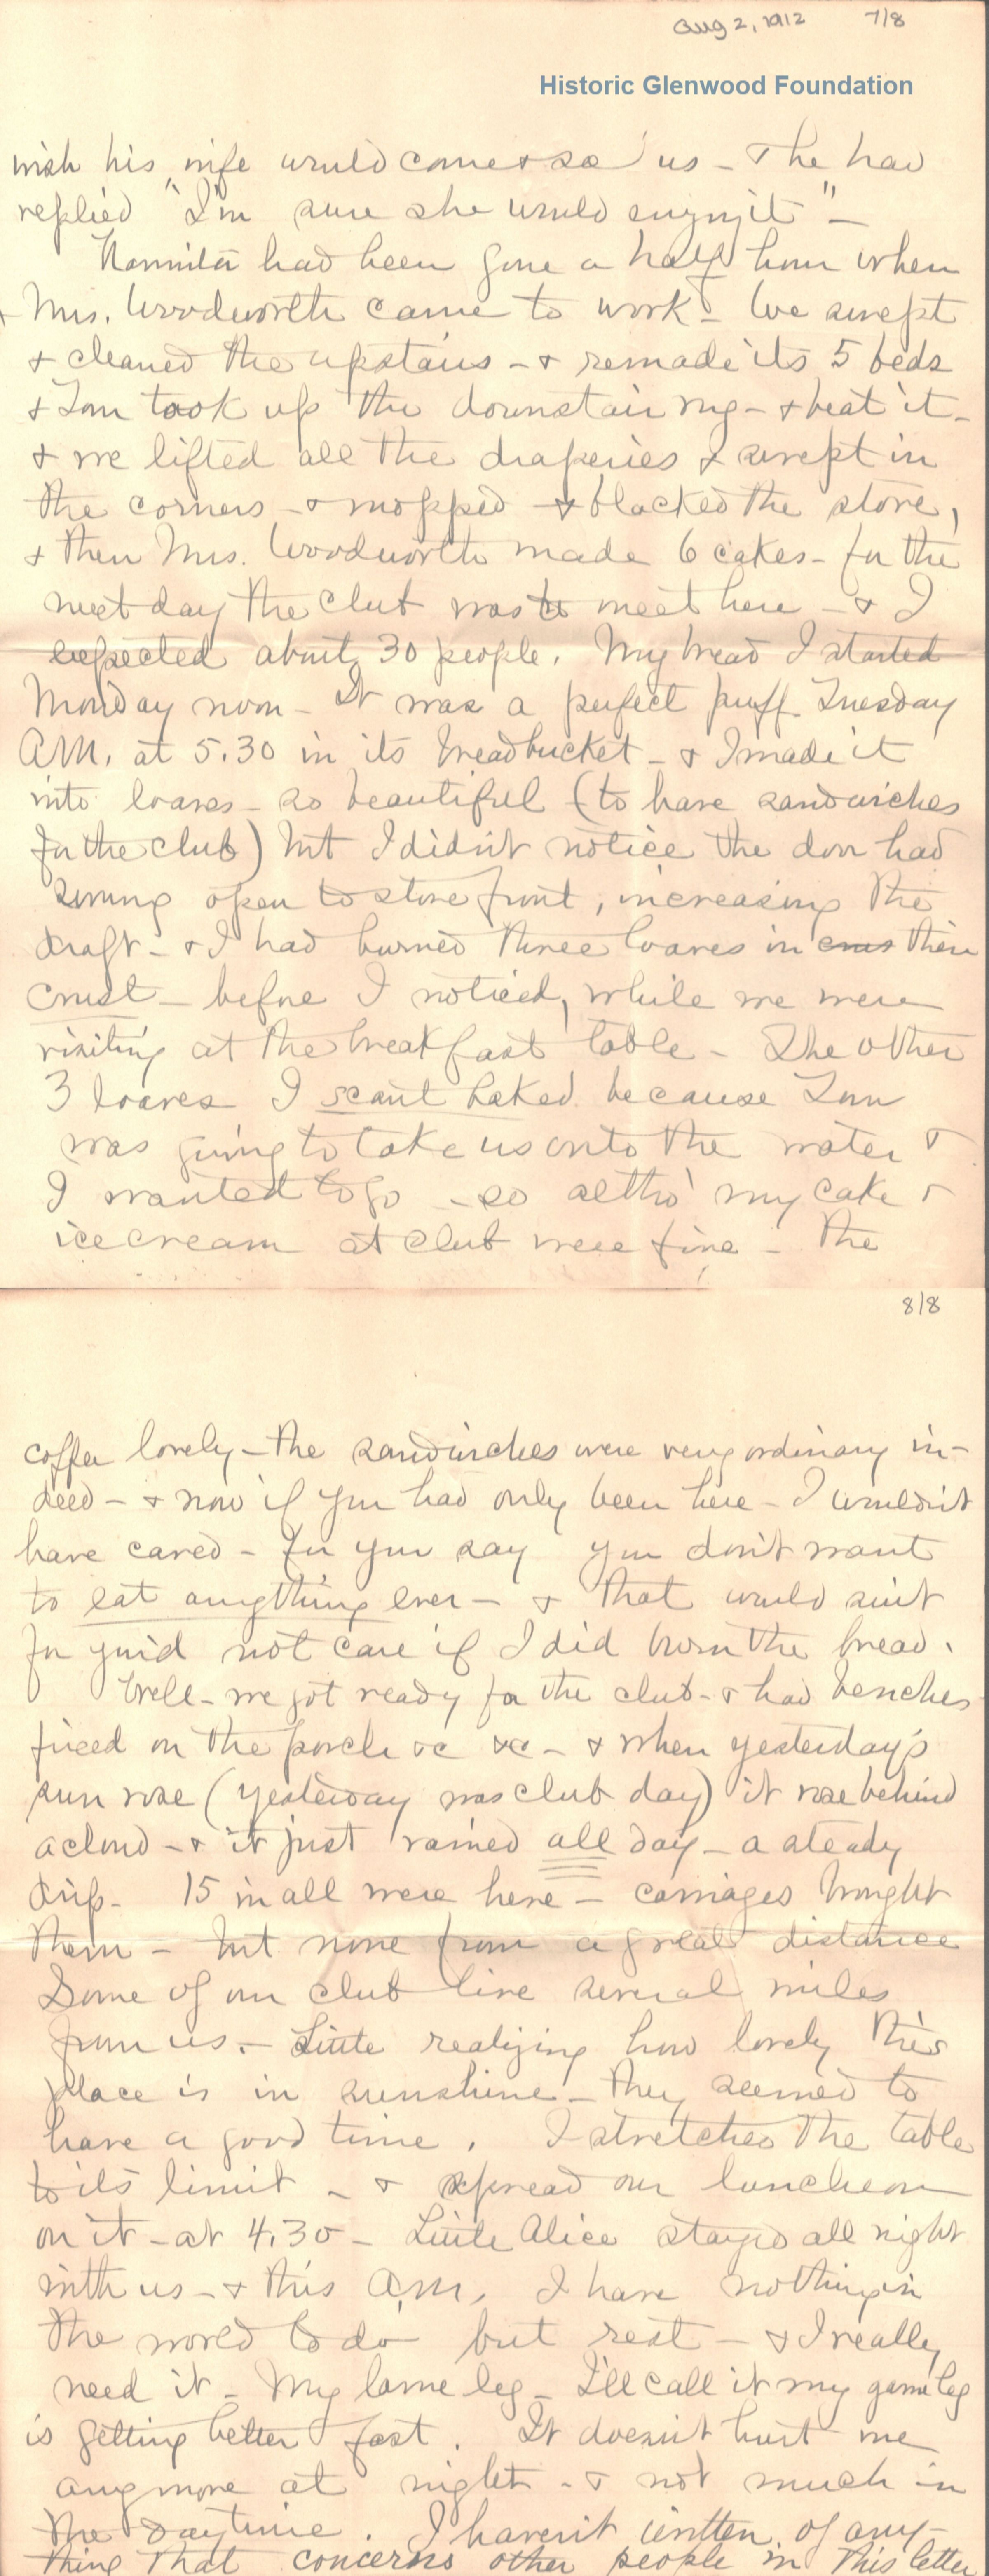 Aug 2, 1912 7/8
Historic Glenwood Foundation
wish his wife would come & see us - & he had
replied "I'm sure she would enjoy it" -
had been gone a half hour when
Mrs. Woodworth came to work - We swept
& cleaned the upstairs - & remade its 5 beds
& Tom took up the downstair rug - & beat it -
& we lifted all the draperies & swept in
the corners - & mopped & blacked the stove,
& then Mrs. Woodworth made 6 cakes - for the
next day the club was to meet here - & I
expected about 30 people. My bread I started
Monday noon - It was a perfect puff Tuesday
A.M. at 5.30 in its breadbucket - & I made it
into loaves - so beautiful (to have sandwiches
for the club) but I didn't notice the door had
swung open to stove front, increasing the
draft - & I had burned three loaves in crus their
crust - before I noticed, while we were
visiting at the breakfast table - The other
3 loaves I scant baked because Tom
was going to take us onto the water &
I wanted to go - so altho' my cake &
icecream at club were fine - the
8/8
coffee lovely - the sandwiches were very ordinary in-
deed - & now if you had only been here - I wouldn't
have cared - for you say you don't want
to eat anything ever - & that would suit
for you'd not care if I did burn the bread.
Well - we got ready for the club - & had benches
fixed on the porch &c &c - & when yesterday's
sun rose (yesterday was club day) it rose behind
a cloud - & it just rained all day - a steady
drip - 15 in all were here - carriages brought
them - but none from a great distance
Some of our club live several miles
from us. - Little realizing how lovely this
place is in sunshine - they seemed to
have a good time. I stretched the table
to its limit - & spread our luncheon
on it - at 4.30 - Little Alice stayed all night
with us - & this A.M. I have nothing in
the world to do but rest - & I really
need it - My lame leg - I'll call it my game leg
is getting better fast. It doesn't hurt me
anymore at night - & not much in
the daytime. I haven't written of any-
thing that concerns other people in this letter